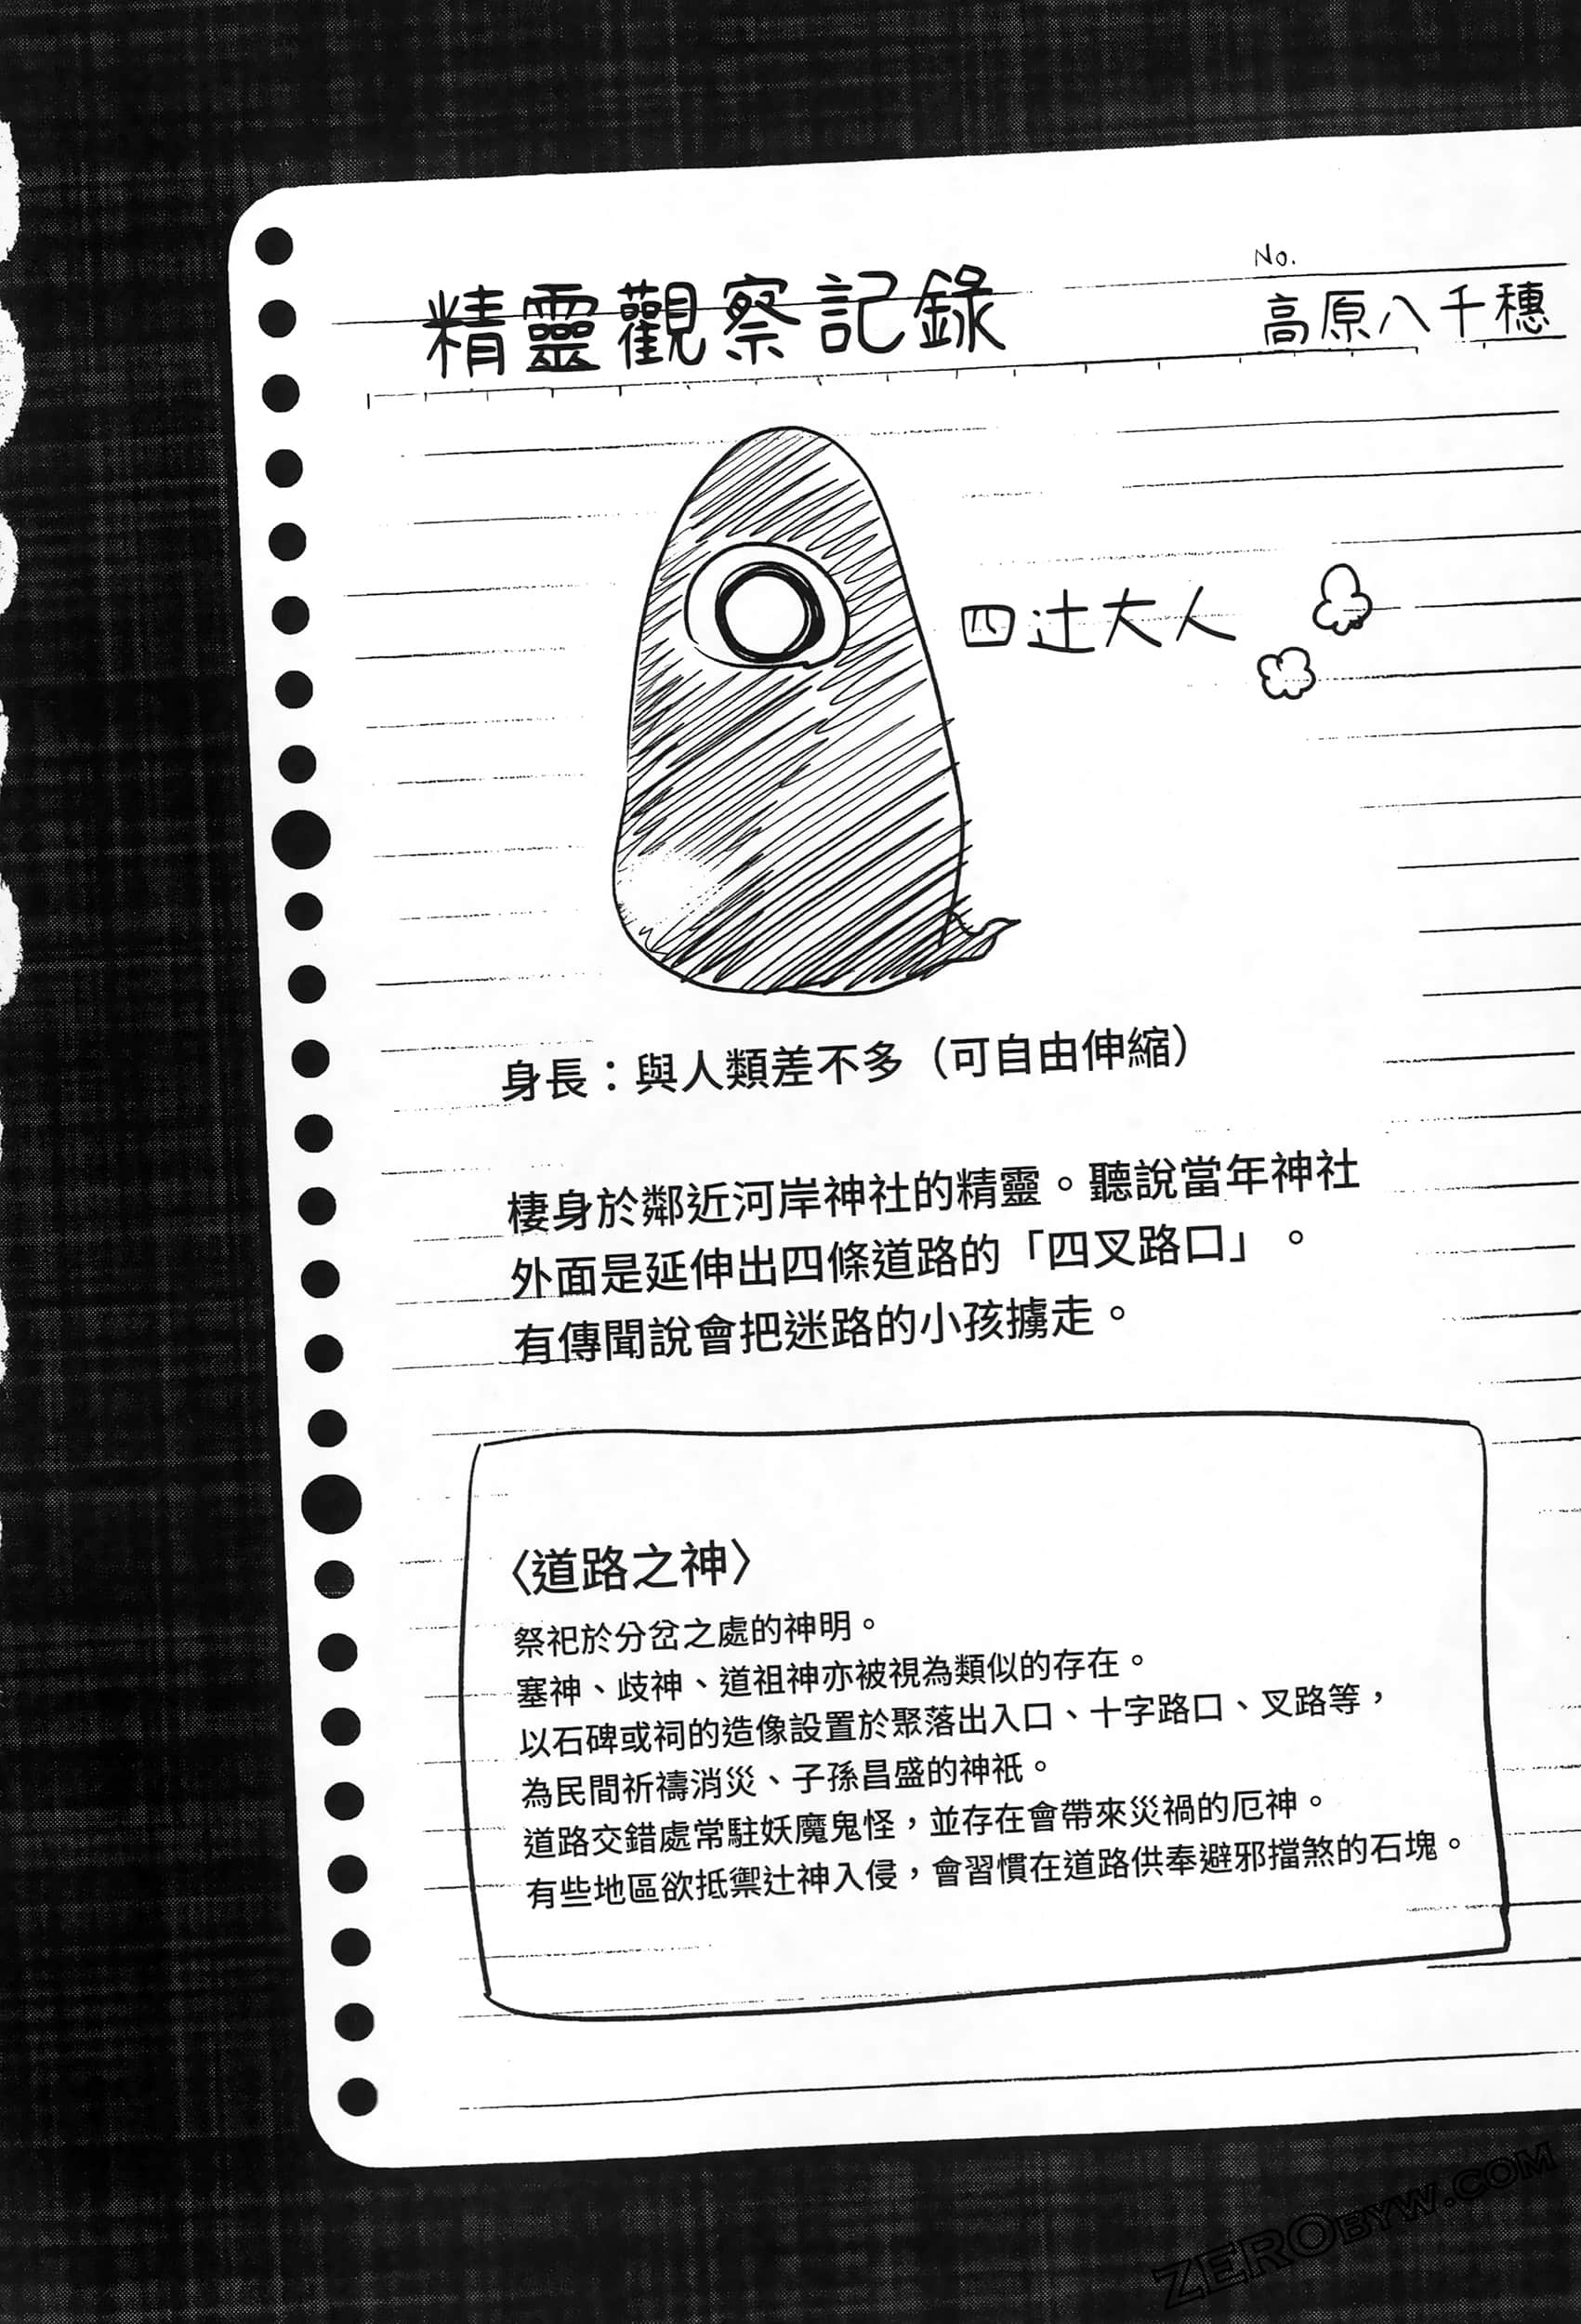 No.
精靈觀察記錄
高原八千穗
四辻大人
身長：與人類差不多（可自由伸縮）
棲身於鄰近河岸神社的精靈。聽說當年神社
外面是延伸出四條道路的「四叉路口」。
有傳聞說會把迷路的小孩擄走。
〈道路之神〉
祭祀於分岔之處的神明。
塞神、歧神、道祖神亦被視為類似的存在。
以石碑或祠的造像設置於聚落出入口、十字路口、叉路等，
為民間祈禱消災、子孫昌盛的神祇。
道路交錯處常駐妖魔鬼怪，並存在會帶來災禍的厄神。
有些地區欲抵禦辻神入侵，會習慣在道路供奉避邪擋煞的石塊。
ZEROBYW.COM